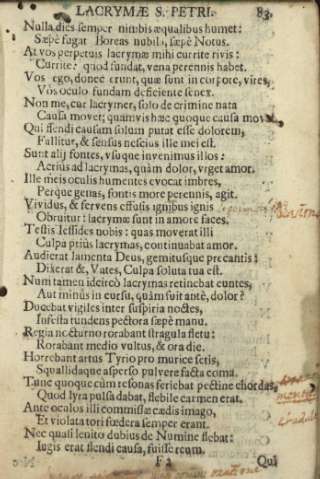 LACRYMÆ S. PETRI. 83
Nulla dies semper nimbis æqualibus humet:
Sæpè fugat Boreas nubila, sæpè Notus.
At vos perpetuis lacrymæ mihi currite rivis:
Currite: quod fundat, vena perennis habet.
Vos ego, donec erunt, quæ sunt in corpore, vires,
Vos oculo fundam deficiente senex.
Non me, cur lacrymer, solo de crimine nata
Causa movet; quamvis hæc quoque causa movet.
Qui flendi causam solum putat esse dolorem,
Fallitur, & sensus nescius ille mei est.
Sunt alij fontes, vsuque invenimus illos:
Acriùs ad lacrymas, quàm dolor, vrget amor.
Ille meis oculis humentes evocat imbres,
Perque genas, fontis more perennis, agit.
Vividus, & fervens effusis ignibus ignis
Obruitur: lacrymæ sunt in amore faces.
Testis Iessides nobis: quas moverat illi
Culpa priùs lacrymas, continuabat amor.
Audierat lamenta Deus, gemitusque precantis:
Dixerat &, Vates, Culpa soluta tua est.
Num tamen idcircò lacrymas retinebat euntes,
Aut minùs in cursu, quàm fuit antè, dolor?
Ducebat vigiles inter suspiria noctes,
Infesta tundens pectora sæpè manu.
Regia nocturno rorabant stragula fletu:
Rorabant medio vultus, & ora die.
Horrebant artus Tyrio pro murice setis,
Squallidaque asperso pulvere facta coma.
Tunc quoque cùm resonas feriebat pectine chordas,
Quod lyra pulsa dabat, flebile carmen erat.
Ante oculos illi commissæ cædis imago,
Et violata tori fœdera semper erant.
Nec quasi lenito dubius de Numine flebat:
Iugis erat flendi causa, fuisse reum.
F 2 Qui